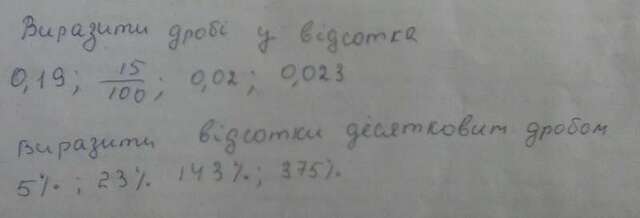 Виразити дробі у відсотка
0,19; 15/100; 0,02; 0,023
Виразити відсотки десятковим дробом
5%; 23% 143%; 375%